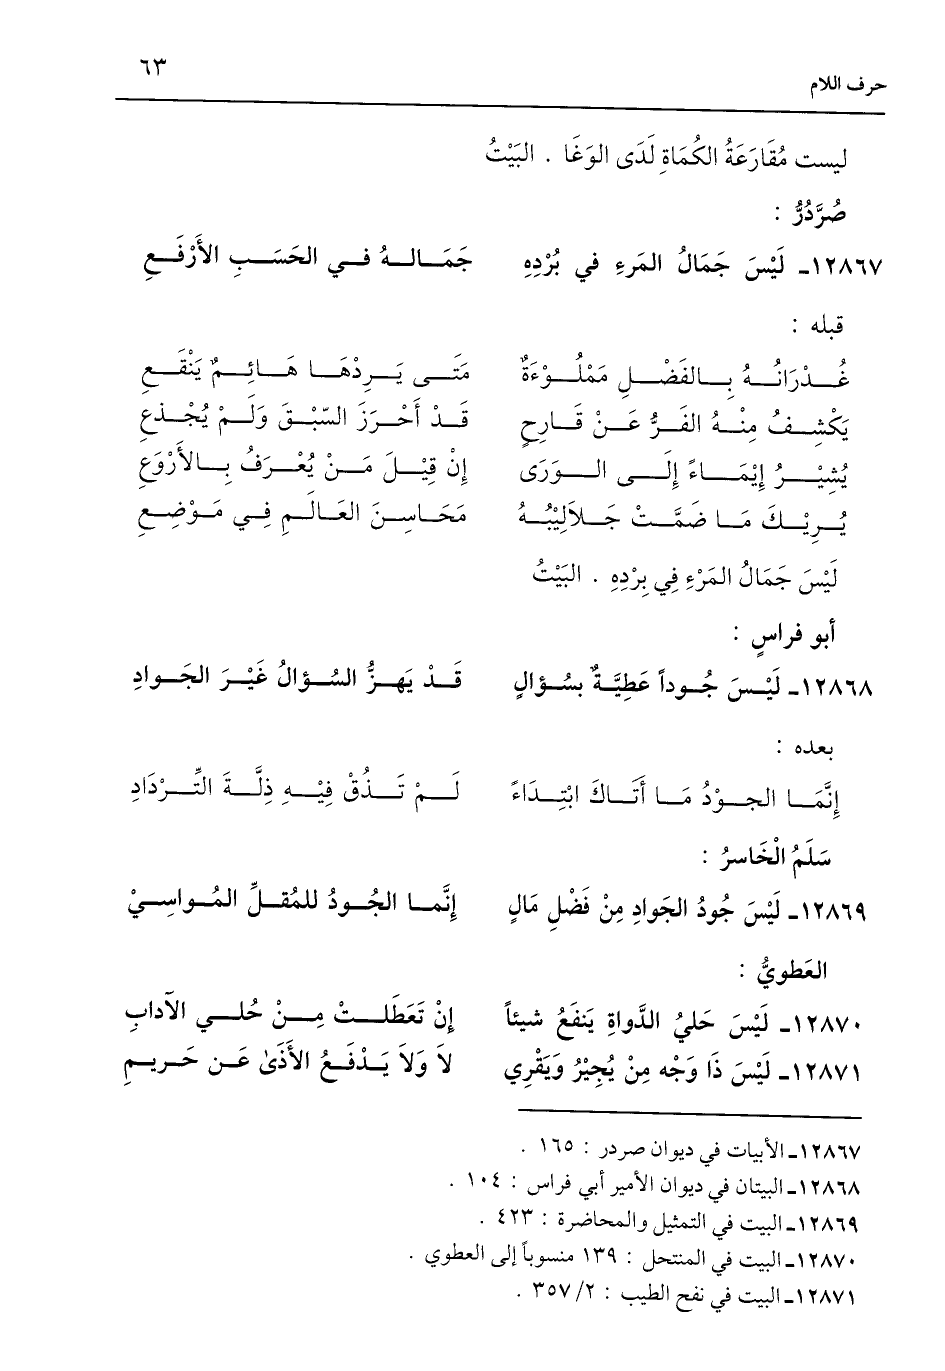 حرف اللام ٦٣
ليست مُقَارَعَةُ الكُمَاةِ لَدَى الوَغَا . البَيْتُ
صُرَّدُرُّ :
١٢٨٦٧ـ لَيْسَ جَمَالُ المَرءِ في بُرْدِهِ جَمَالهُ في الحَسَبِ الأَرْفَعِ
قبله :
غُدْرَانُهُ بِالفَضْلِ مَمْلُوْءَةٌ مَتَى يَرِدْهَا هَائِمٌ يَنْقَعِ
يَكْشِفُ مِنْهُ الفَرُّ عَنْ قَارِحٍ قَدْ أَحْرَزَ السَّبْقَ وَلَمْ يُجْذعِ
يُشِيْرُ إِيْمَاءً إِلَى الوَرَى إِنْ قِيْلَ مَنْ يُعْرَفُ بِالأَرْوَعِ
يُرِيْكَ مَا ضَمَّتْ جَلاَلِيْبُهُ مَحَاسِنَ العَالَمِ فِي مَوْضِعِ
لَيْسَ جَمَالُ المَرْءِ فِي بِرْدِهِ . البَيْتُ
أبو فراسٍ :
١٢٨٦٨ـ لَيْسَ جُوداً عَطِيَّةٌ بسُؤالٍ قَدْ يَهزُّ السُؤالُ غَيْرَ الجَوادِ
بعده :
إِنَّمَا الجوْدُ مَا أَتَاكَ ابْتِدَاءً لَمْ تَذُقْ فِيْهِ ذِلَّةَ التِّرْدَادِ
سَلَمُ الْخَاسرُ :
١٢٨٦٩ـ لَيْسَ جُودُ الجَوادِ مِنْ فَضْلِ مَالٍ إِنَّما الجُودُ للمُقلِّ المُواسِيْ
العَطويُّ :
١٢٨٧٠ـ لَيْسَ حَليُ الدَّواةِ يَنفَعُ شيئاً إِنْ تَعَطَلتْ مِنْ حُلي الآدابِ
١٢٨٧١ـ لَيْسَ ذَا وَجْه مِنْ يُجِيْرُ وَيَقْرِي لاَ وَلاَ يَدْفَعُ الأَذَىٰ عَن حَريمِ
١٢٨٦٧ـ الأبيات في ديوان صردر : ١٦٥ .
١٢٨٦٨ـ البيتان في ديوان الأمير أبي فراس : ١٠٤ .
١٢٨٦٩ـ البيت في التمثيل والمحاضرة : ٤٢٣ .
١٢٨٧٠ـ البيت في المنتحل : ١٣٩ منسوباً إلى العطوي .
١٢٨٧١ـ البيت في نفح الطيب : ٢/ ٣٥٧ .